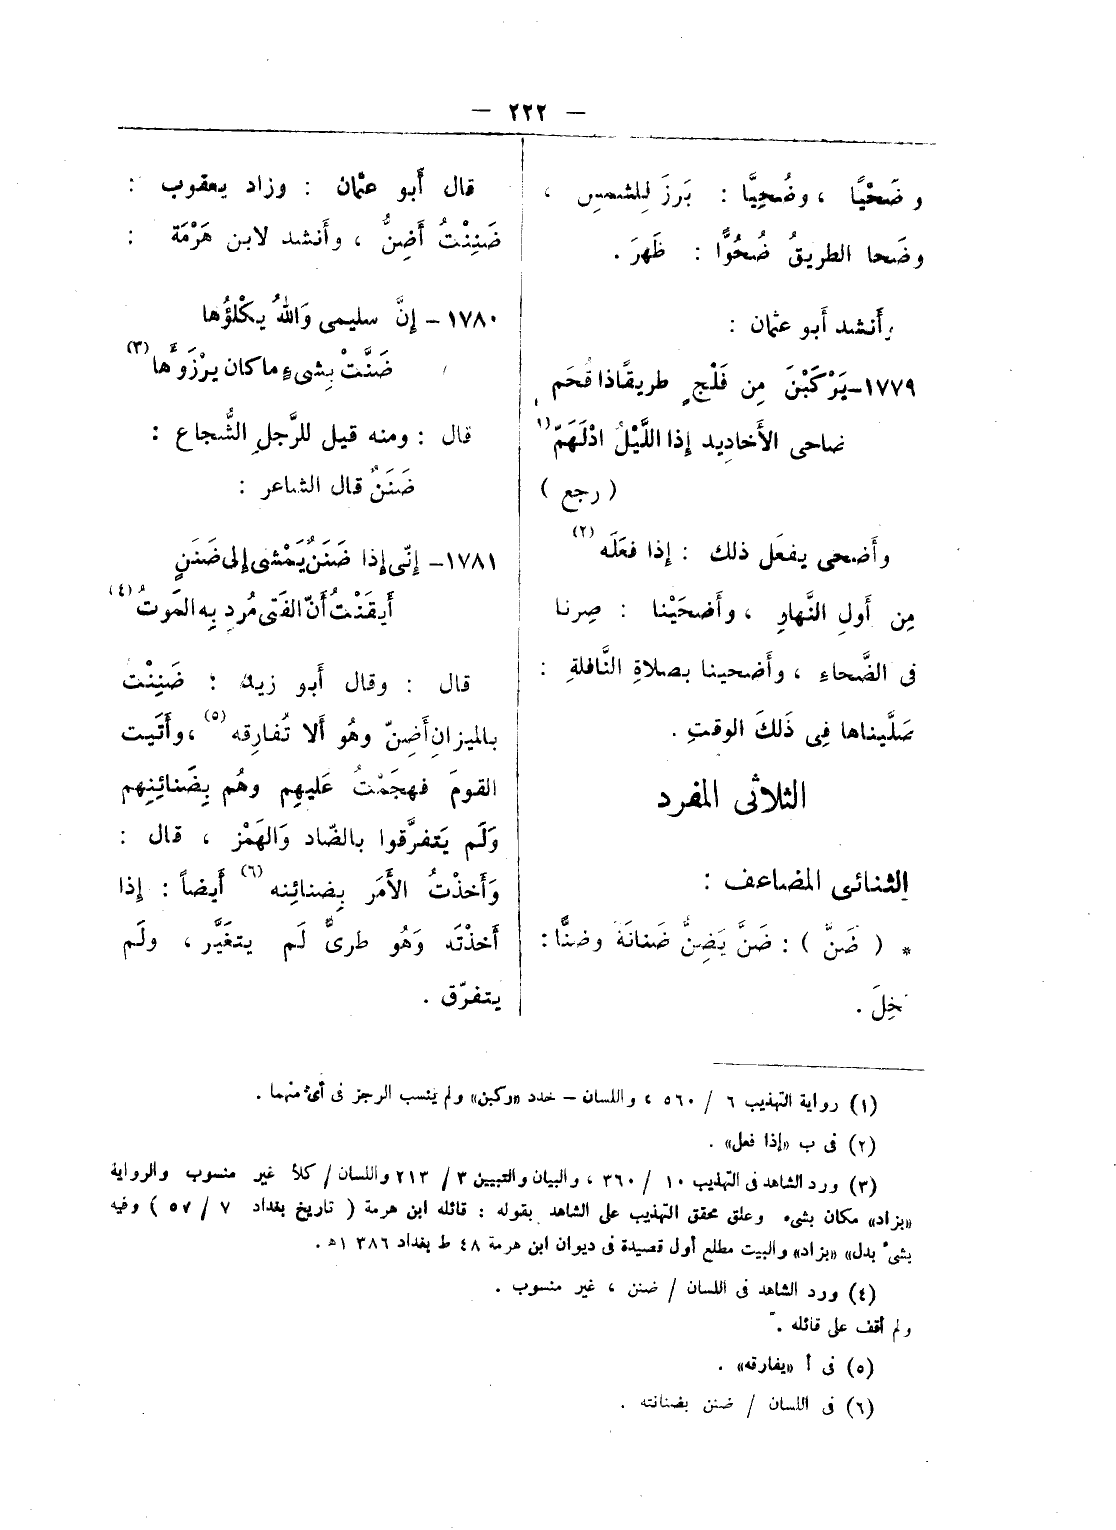 — ٢٢٢ —
وضَحْيًا ، وضُحِيًّا : بَرزَ لِلشمسِ ،
وضَحا الطريقُ ضُحُوًّا : ظَهرَ .
وأَنشد أَبو عثمان :
١٧٧٩–يَرْكَبْنَ مِن فَلْجٍ طريقًا ذا قُحَم
ضاحى الأَخادِيد إِذا اللَّيْلُ ادْلَهَمّ (١)
( رجع )
وأَضحى يفعَل ذلك : إِذا فعَلَه (٢)
مِن أَولِ النَّهارِ ، وأَضحَيْنا : صِرنا
فى الضَّحاءِ ، وأَضحينا بصلاةِ النَّافلةِ :
صَلَّيناها فِى ذَلكَ الوقتِ .
الثلاثى المفرد
الثنائى المضاعف :
* ( ضَنَّ ) : ضَنَّ يَضِنُّ ضَنانَةً وضنًّا :
بَخِلَ .
قال أَبو عثمان : وزاد يعقوب :
ضَنِنْتُ أَضِنُّ ، وأَنشد لابن هَرْمَة :
١٧٨٠– إِنَّ سليمى وَاللهُ يكْلؤُها
ضَنَّتْ بِشىءٍ ما كان يرْزَوُها (٣)
قال : ومنه قيل للرَّجلِ الشُّجاع :
ضَنَنٌ قال الشاعر :
١٧٨١– إِنّى إِذا ضَنَنٌ يَمْشى إِلى ضَنَنٍ
أَيقَنْتُ أَنّ الفَتى مُردٍ بِه المَوتُ (٤)
قال : وقال أَبو زيد : ضَنِنْتُ
بالميزانِ أَضِنّ وهُو أَلا تُفارِقه (٥) ، وأَتَيت
القومَ فهجَمْتُ عَليهِم وهُم بِضَنائِنِهم
وَلَم يَتفرَّقوا بالضّاد وَالهَمْز ، قال :
وَأَخذْتُ الأَمَر بِضنائِنه (٦) أَيضاً : إِذا
أَخذْتَه وَهُو طرىٌّ لَم يتغَيَّر ، ولَم
يتفرّق .
(١) رواية التهذيب ٦ / ٥٦٠ ، واللسان – خدد «ركبن» ولم ينسب الرجز فى أىّ منهما .
(٢) فى ب «إذا فعل» .
(٣) ورد الشاهد فى التهذيب ١٠ / ٣٦٠ ، والبيان والتبيين ٣ / ٢١٣ واللسان / كلأ غير منسوب والرواية
«بزاد» مكان بشىء وعلق محقق التهذيب على الشاهد بقوله : قائله ابن هرمة ( تاريخ بغداد ٧ / ٥٧ ) وفيه
بشىء بدل» «بزاد» والبيت مطلع أول قصيدة فى ديوان ابن هرمة ٤٨ ط بغداد ١٣٨٦ه .
(٤) ورد الشاهد فى اللسان / ضنن ، غير منسوب .
ولم أقف على قائله .
(٥) فى أ «يفارقه» .
(٦) فى اللسان / ضنن بضنانته .